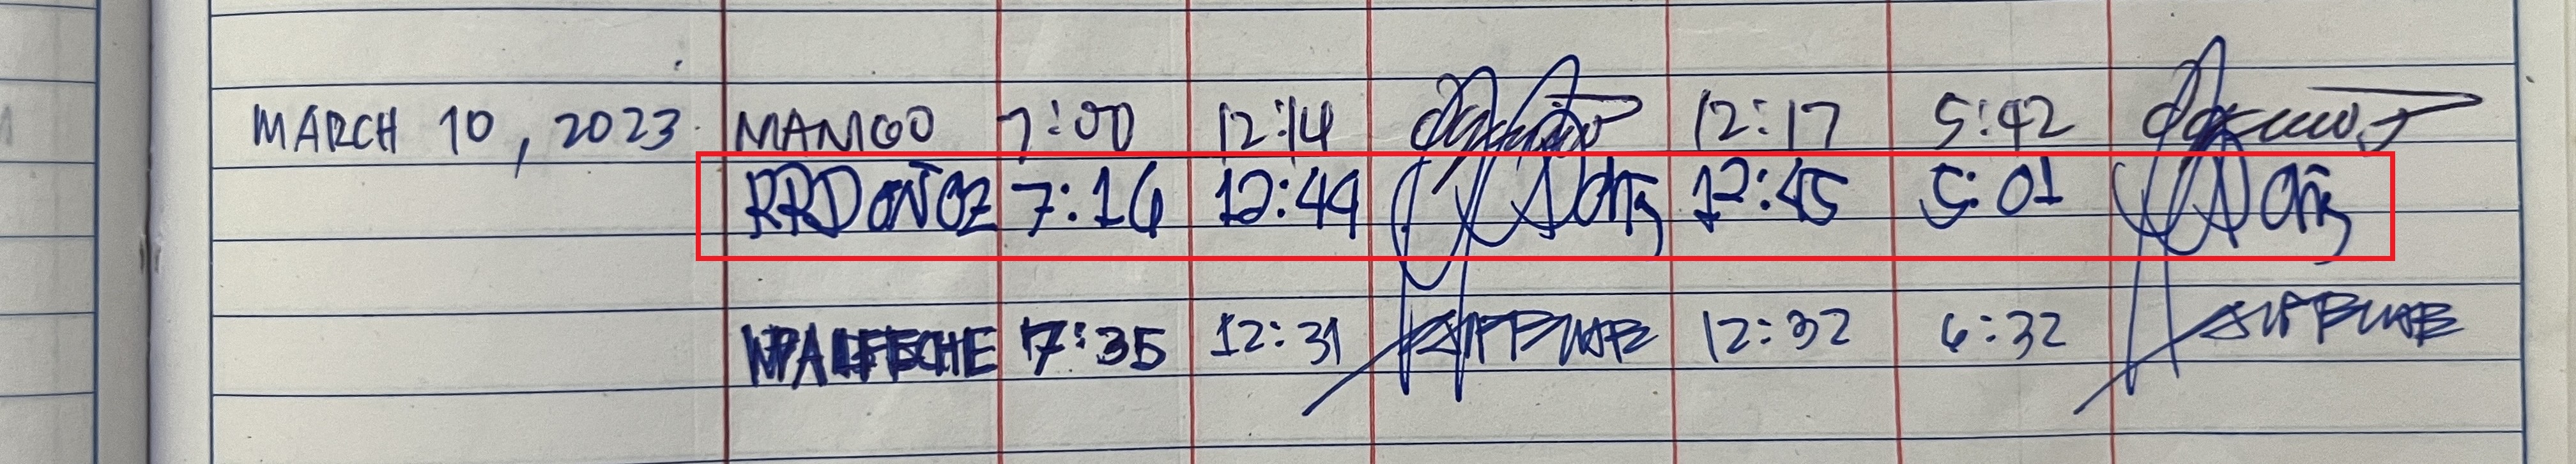 MARCH 10, 2023 MANGO 7:00 12:14 12:17 5:42
RRDOÑOZ 7:16 12:44 12:45 5:01
NPALFECHE 7:35 12:31 12:32 6:32